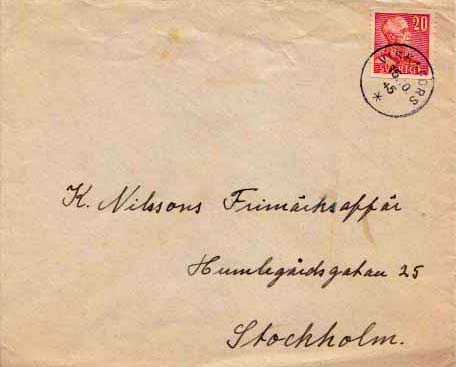 20
SVERIGE
45
K. Nilssons Frimärksaffär
Humlegårdsgatan 25
Stockholm.